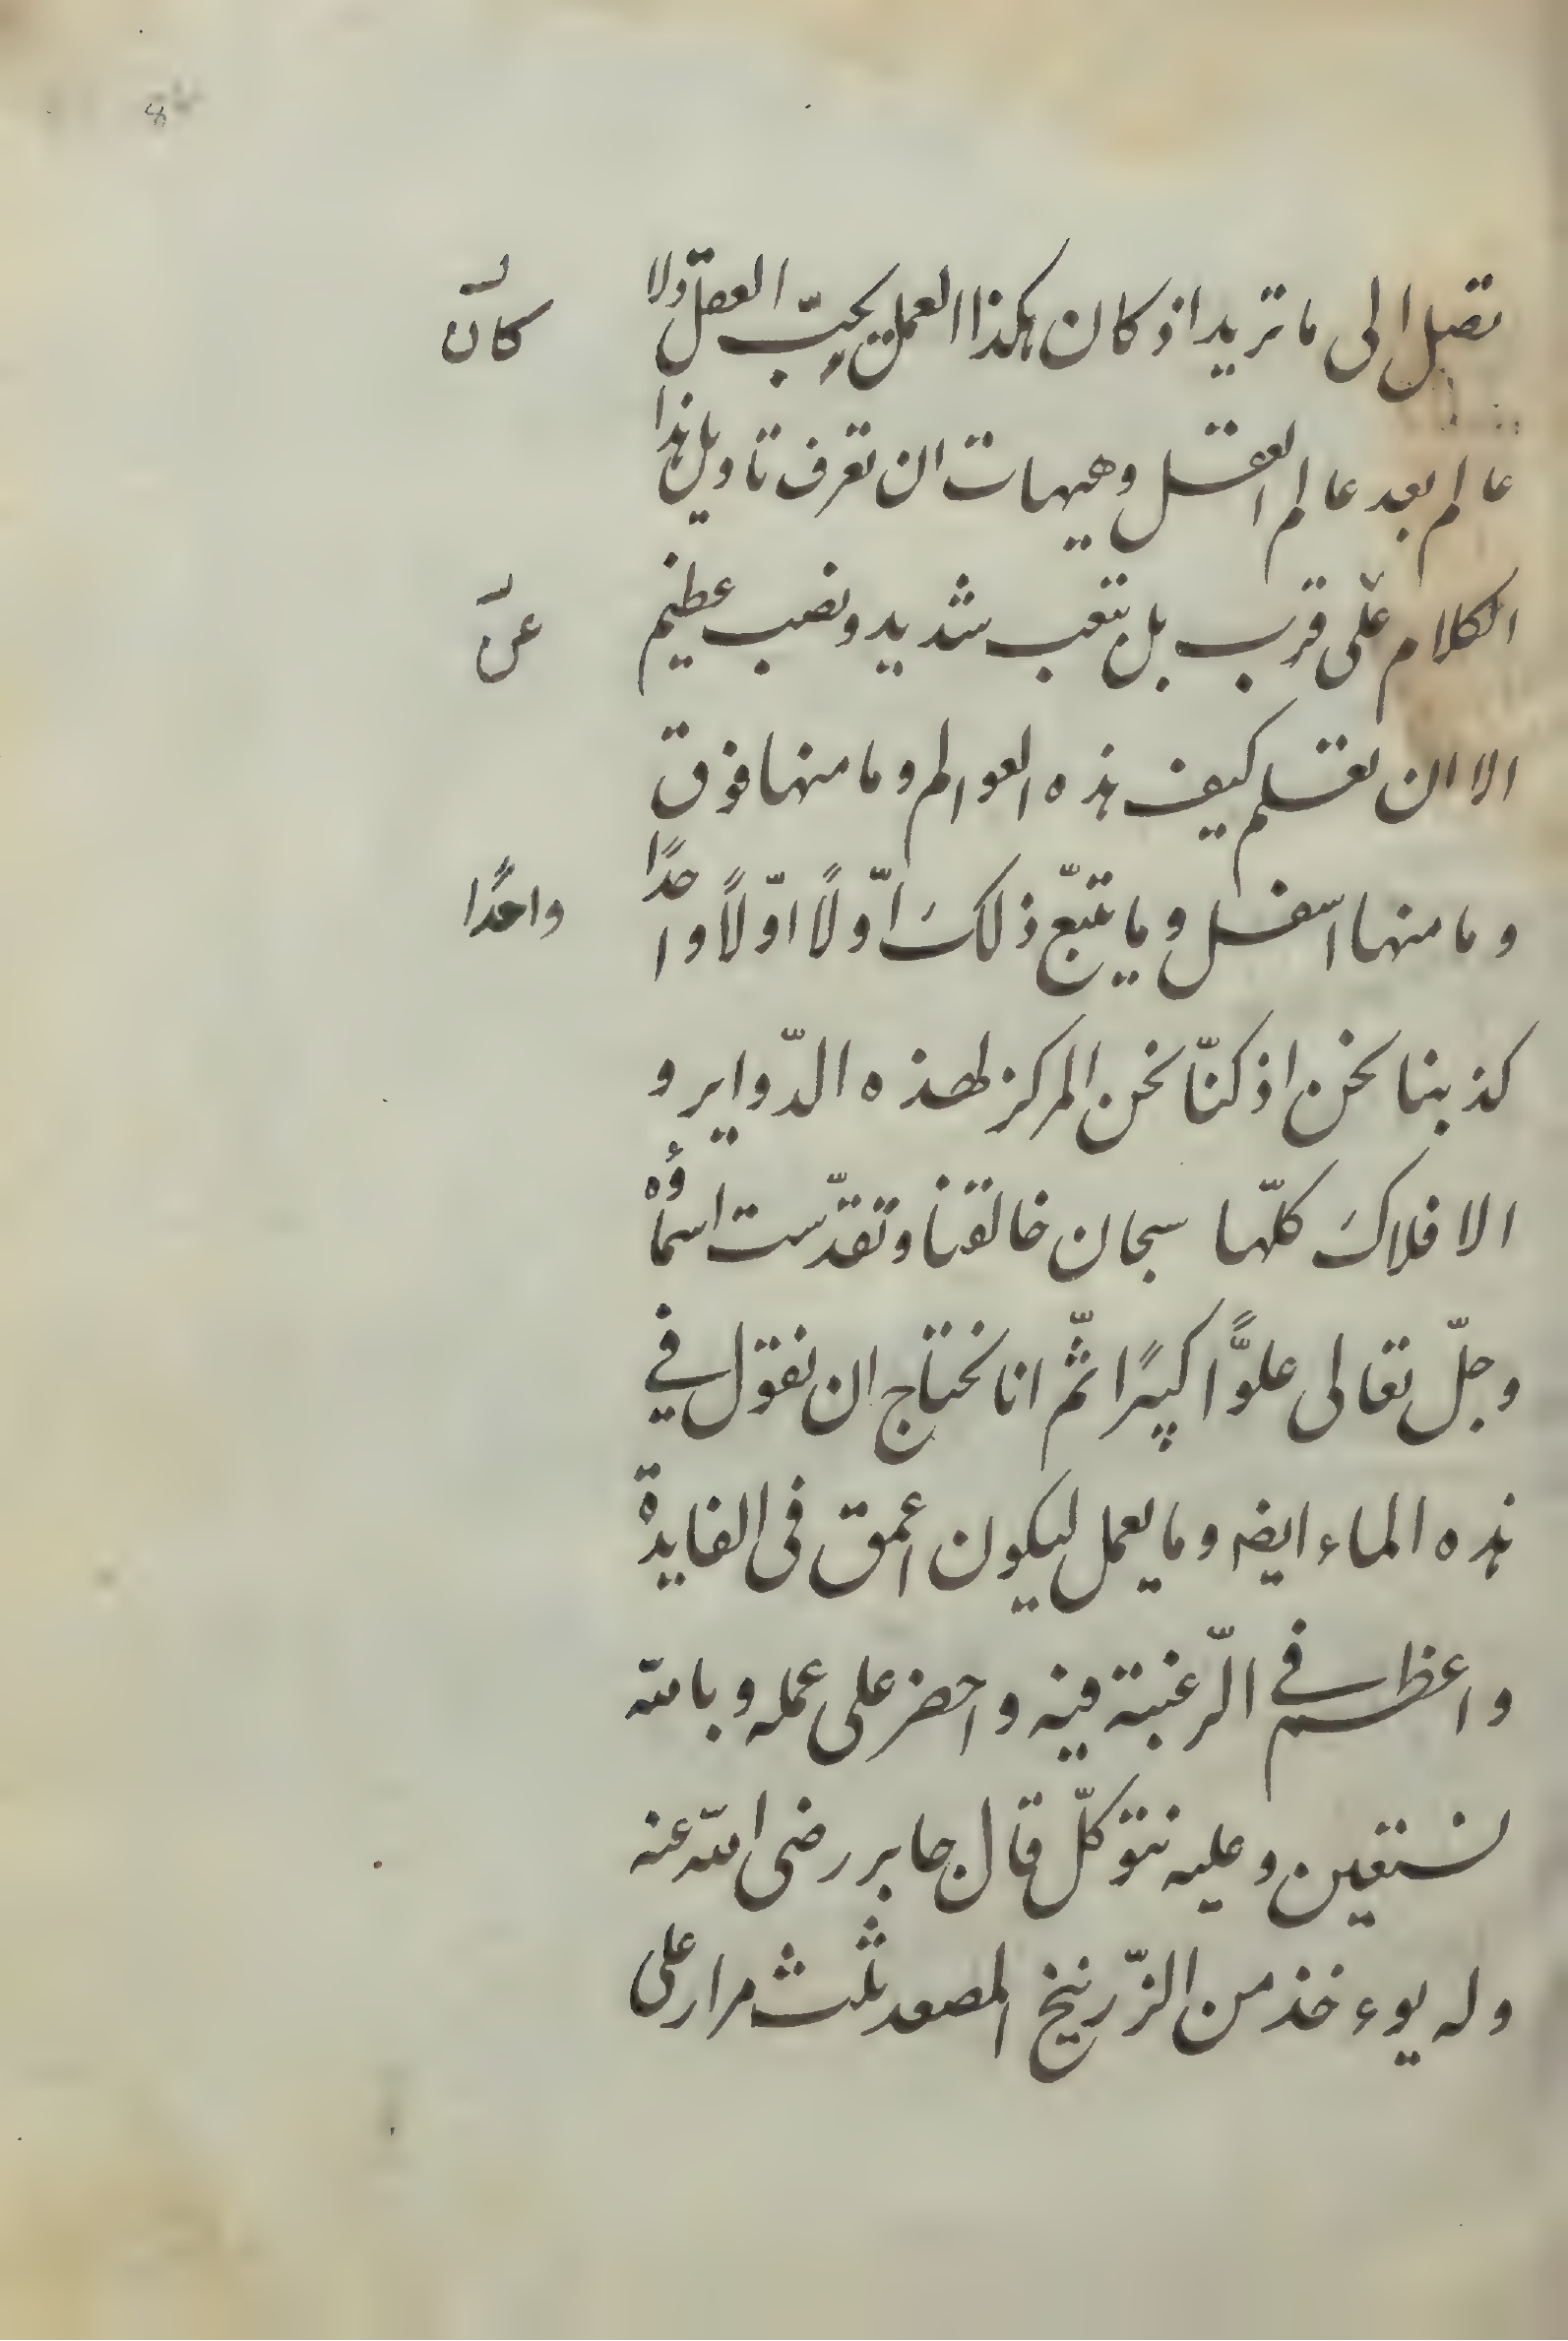 تصل الى ما تريد اذ كان هكذا العمل يحبّ العقل ولا
كان
عالم بعد عالم العقل وهيهات ان تعرف تاويل هذا
الكلام على قرب بل بتعب شديد ونصب عظيم
عن
الا ان تعلم كيف هذه العوالم وما منها فوق
وما منها اسفل وما يتبع ذلك اوّلًا اوّلًا واحدًا
واحدًا
كذبنا نحن اذ كنّا نحن المركز لهذه الدّواير و
الافلاك كلّها سبحان خالقنا وتقدّست اسماؤه
وجلّ تعالى علوًّا كبيرًا ثمّ انا نحتاج ان نقول في
هذه الماء ايضه وما يعمل ليكون اعمق فى الفايدة
واعظم في الرّغبة فيه واحضر على عمله وبالله
نستعين وعليه نتوكلّ قال جابر رضى الله عنه
وله يوء خذ من الزّرنيخ المصعد ثلث مرار على